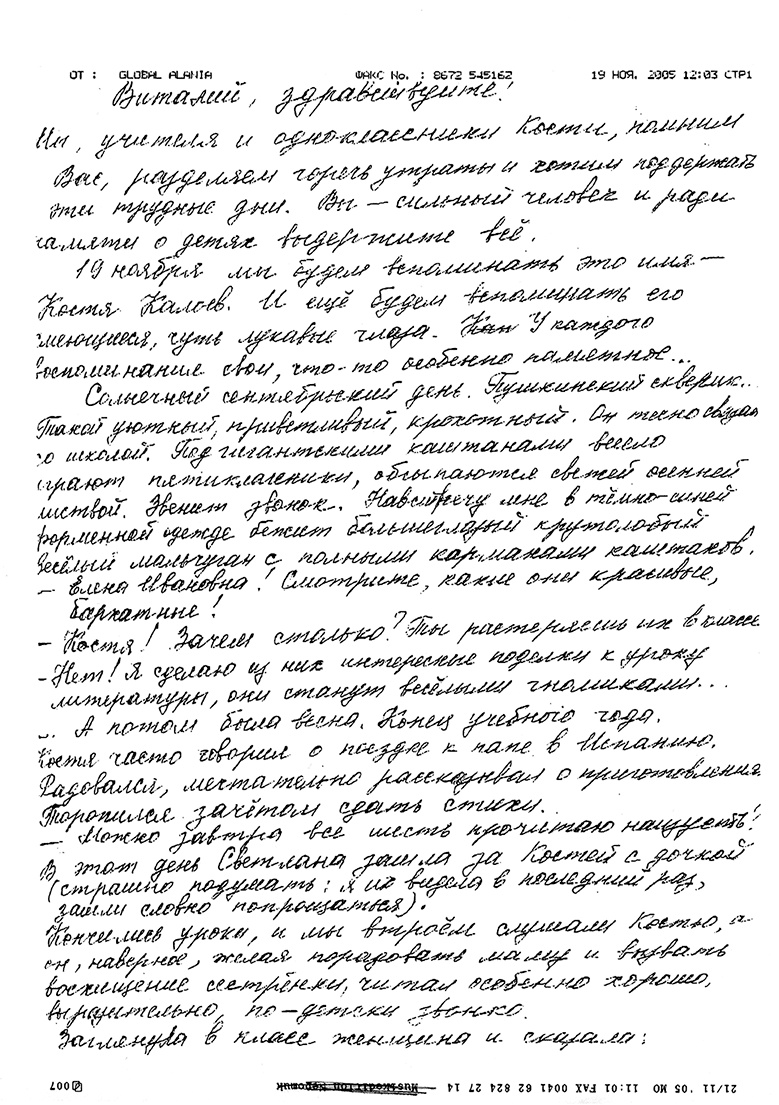 ОТ : GLOBAL ALANIA ФАКС No. : 8672 545162 19 НОЯ. 2005 12:03 СТР1
Виталий, здравствуйте!
Мы, учителя и одноклассники Кости, помним
Вас, разделяем горечь утраты и хотим поддержать
эти трудные дни. Вы — сильный человек и ради
памяти о детях выдержите всё.
19 ноября мы будем вспоминать это имя —
Костя Калоев. И ещё будем вспоминать его
смеющиеся, чуть лукавые глаза. У каждого
воспоминание свои, что-то особенно памятное...
Солнечный сентябрьский день. Пушкинский скверик...
Такой уютный, приветливый, крохотный. Он тесно связан
со школой. Под гигантскими каштанами весело
играют пятиклассники, обсыпаются свежей осенней
листвой. Звенит звонок. Навстречу мне в тёмно-синей
форменной одежде бежит большеглазый крутолобый
весёлый мальчуган с полными карманами каштанов.
— Елена Ивановна! Смотрите, какие они красивые,
бархатные!
— Костя! Зачем столько? Ты растеряешь их в классе
— Нет! Я сделаю из них интересные поделки к уроку
литературы, они станут весёлыми гномиками...
... А потом была весна. Конец учебного года.
Костя часто говорил о поездке к папе в Испанию.
Радовался, мечтательно рассказывал о приготовления
Торопился зачётом сдать стихи.
— Можно завтра все шесть прочитаю наизусть!
В этот день Светлана зашла за Костей с дочкой
(страшно подумать: я их видела в последний раз,
зашли словно попрощаться).
Кончились уроки, и мы втроём слушали Костю, а
он, наверное, желая порадовать маму и вызвать
восхищение сестрёнки, читал особенно хорошо,
выразительно, по-детски звонко.
Заглянула в класс женщина и сказала:
21/11 '05 MO 11:01 FAX 0041 62 824 27 14 007